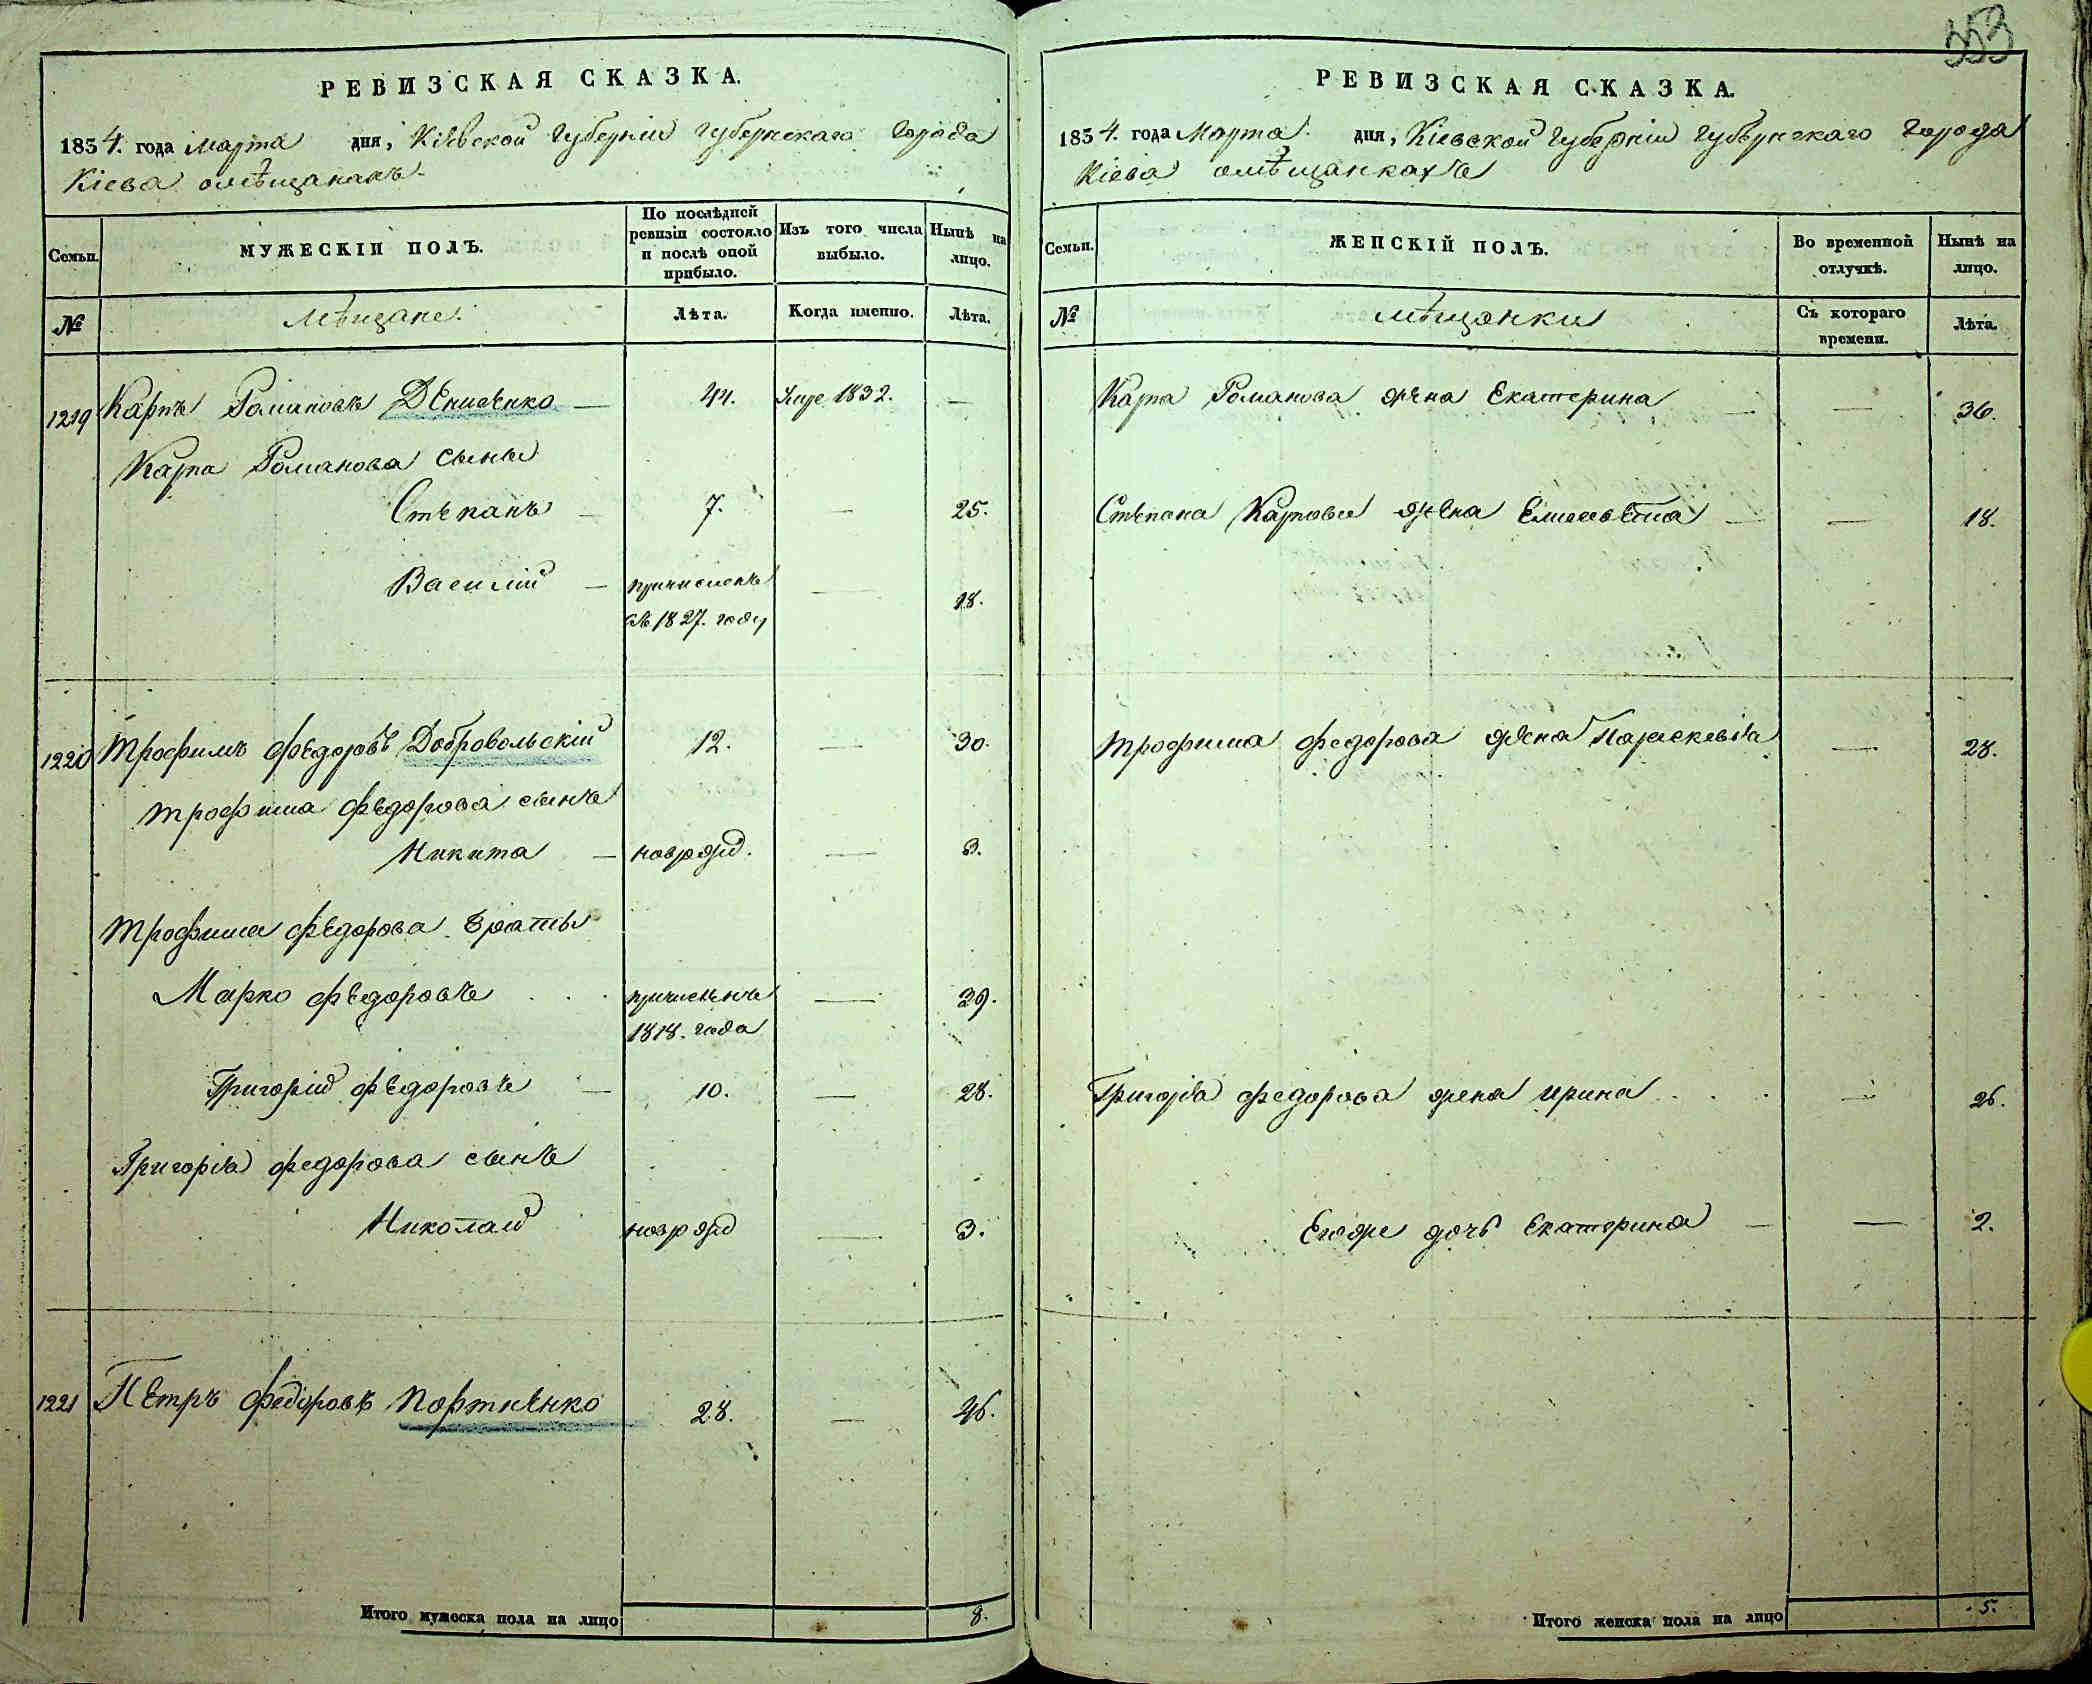 353
РЕВИЗСКАЯ СКАЗКА.
1834. года Марта дня, Кіевской Губерніи Губернскаго Города
Кіева омѣщанахъ.
Семьи.
МУЖЕСКІЙ ПОЛЪ.
По послѣдней
ревизіи состояло
и послѣ оной
прибыло.
Изъ того числа
выбыло.
Нынѣ на
лицо.
№
Мѣщане.
Лѣта.
Когда именно.
Лѣта.
1219 Карпъ Романовъ Денисенко — 44. 1832. —
Карпа Романова сыны
Степанъ — 7. — 25.
Василій — причисленъ — 18.
въ 1827. году
1220 Трофимъ Федоровъ Добровольскій 12. — 30.
Трофима Федорова сынъ
Никита — новрожд. — 3.
Трофима Федорова братья
Марко Федоровъ . . . причисленъ — 29.
1818. года
Григорій Федоровъ — 10. — 28.
Григорія Федорова сынъ
Николай новрожд — 3.
1221 Петръ Федоровъ Портненко 28. — 46.
Итого мужеска пола на лицо 8.
РЕВИЗСКАЯ СКАЗКА.
1834. года Марта. дня, Кіевской Губерніи Губернскаго Города
Кіева омѣщанкахъ
Семьи.
ЖЕНСКІЙ ПОЛЪ.
Во временной
отлучкѣ.
Нынѣ на
лицо.
№
Мѣщанки
Съ котораго
времени.
Лѣта.
Карпа Романова жена Екатерина — — 36.
Степана Карпова жена Елисавета — — 18.
Трофима Федорова жена Параскевія — 28.
Григорія Федорова жена Ирина . . . — 26.
Егоже дочь Екатерина — — 2.
Итого женска пола на лицо 5.